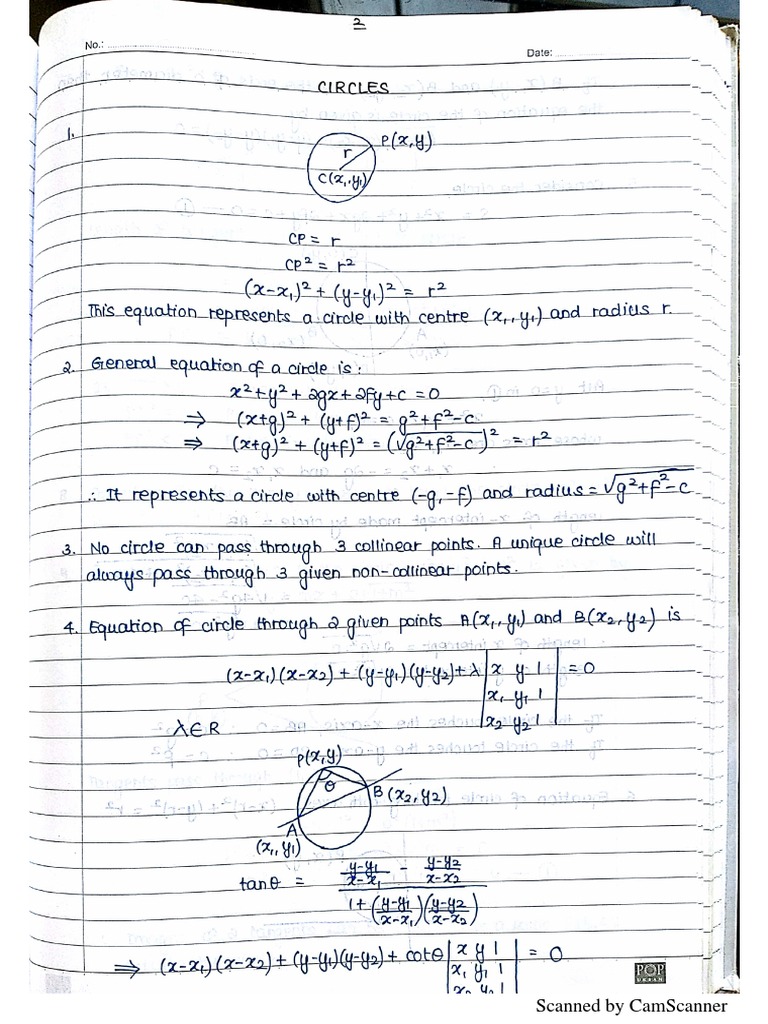 2
No.:
Date:
CIRCLES
1.
P(x,y)
r
C(x₁,y₁)
CP = r
CP² = r²
(x-x₁)² + (y-y₁)² = r²
This equation represents a circle with centre (x₁,y₁) and radius r.
2. General equation of a circle is:
x²+y²+2gx+2fy+c=0
⇒ (x+g)² + (y+f)² = g²+f²-c
⇒ (x+g)² + (y+f)² = (√g²+f²-c)² = r²
∴ It represents a circle with centre (-g,-f) and radius = √g²+f²-c
3. No circle can pass through 3 collinear points. A unique circle will
always pass through 3 given non-collinear points.
4. Equation of circle through 2 given points A(x₁,y₁) and B(x₂,y₂) is
(x-x₁)(x-x₂) + (y-y₁)(y-y₂) + λ | x y 1 | = 0
x₁ y₁ 1
x₂ y₂ 1
λ∈R
P(x,y)
θ
B(x₂,y₂)
A
(x₁,y₁)
tanθ = ((y-y₁)/(x-x₁) - (y-y₂)/(x-x₂)) / (1+((y-y₁)/(x-x₁))((y-y₂)/(x-x₂)))
⇒ (x-x₁)(x-x₂) + (y-y₁)(y-y₂) + cotθ | x y 1 | = 0
x₁ y₁ 1
x₂ y₂ 1
POP
URBAN
Scanned by CamScanner